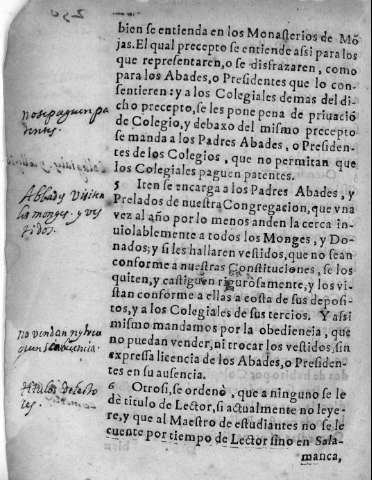 bien se entienda en los Monasterios de Mõ
jas. El qual precepto se entiende assi para los
que representaren, o se disfrazaren, como
para los Abades, o Presidentes que lo con-
sentieren: y a los Colegiales demas del di-
cho precepto, se les pone pena de priuaciõ
de Colegio, y debaxo del mismo precepto
se manda a los Padres Abades, o Presiden-
tes de los Colegios, que no permitan que
los Colegiales paguen patentes.
no se paguen pa
dentes.
5 Iten se encarga a los Padres Abades, y
Prelados de nuestra Congregacion, que vna
vez al año por lo menos anden la cerca in-
uiolablemente a todos los Monges, y Do-
nados; y si les hallaren vestidos, que no sean
conforme a nuestras Constituciones, se los
quiten, y castiguen rigurosamente, y los vi-
stan conforme a ellas a costa de sus deposi-
tos, y a los Colegiales de sus tercios. Y assi
mismo mandamos por la obediencia, que
no puedan vender, ni trocar los vestidos, sin
expressa licencia de los Abades, o Presiden-
tes en su ausencia.
Abbades visiten
los monges. y ves
tidos.
No vendan ny true
quen
6 Otrosi, se ordenò, que a ninguno se le
dè titulo de Lector, si actualmente no leye-
re, y que al Maestro de estudiantes no se le
cuente por tiempo de Lector sino en Sala-
manca,